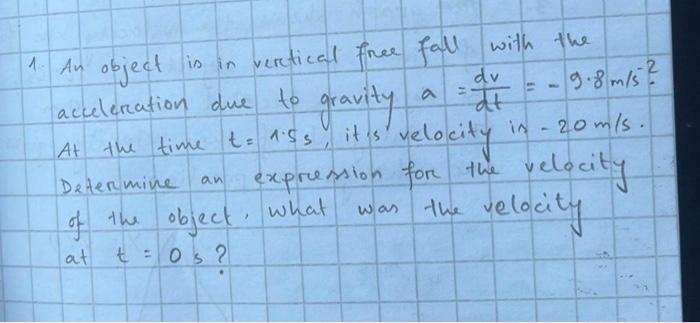 1. An object is in vertical free fall with the
acceleration due to gravity a = dv/dt = - 9.8 m/s².
At the time t = 1.5s, it's velocity is - 20 m/s.
Determine an expression for the velocity
of the object. What was the velocity
at t = 0 s?